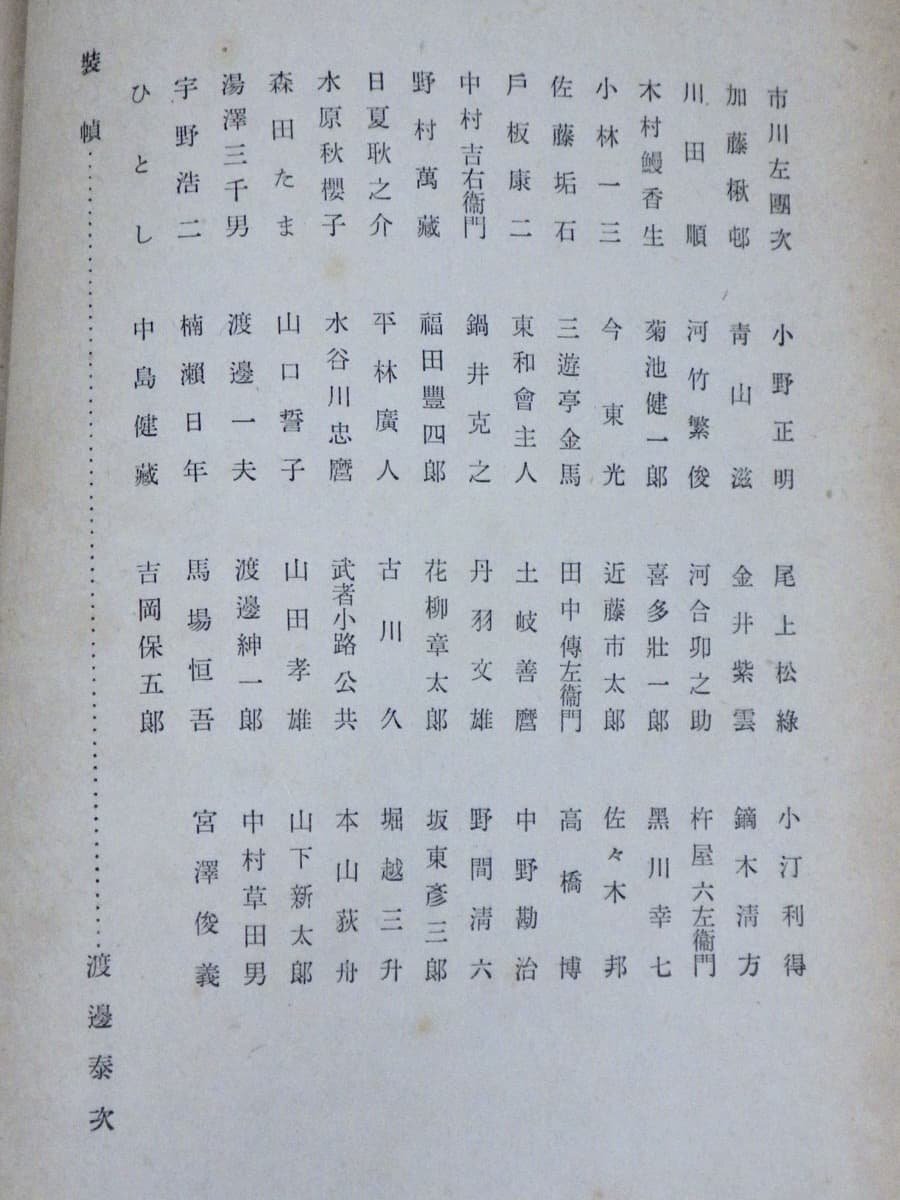 市川左團次 小野正明 尾上松綠 小汀利得
加藤楸邨 靑山滋 金井紫雲 鏑木淸方
川田順 河竹繁俊 河合卯之助 杵屋六左衞門
木村鰻香生 菊池健一郞 喜多壯一郞 黑川幸七
小林一三 今東光 近藤市太郞 佐々木邦
佐藤垢石 三遊亭金馬 田中傳左衞門 高橋博
戶板康二 東和會主人 土岐善麿 中野勘治
中村吉右衞門 鍋井克之 丹羽文雄 野間淸六
野村萬藏 福田豐四郞 花柳章太郞 坂東彥三郞
日夏耿之介 平林廣人 古川久 堀越三升
水原秋櫻子 水谷川忠麿 武者小路公共 本山荻舟
森田たま 山口誓子 山田孝雄 山下新太郞
湯澤三千男 渡邊一夫 渡邊紳一郞 中村草田男
宇野浩二 楠瀨日年 馬場恒吾 宮澤俊義
ひとし 中島健藏 吉岡保五郞
裝幀……………………………渡邊泰次